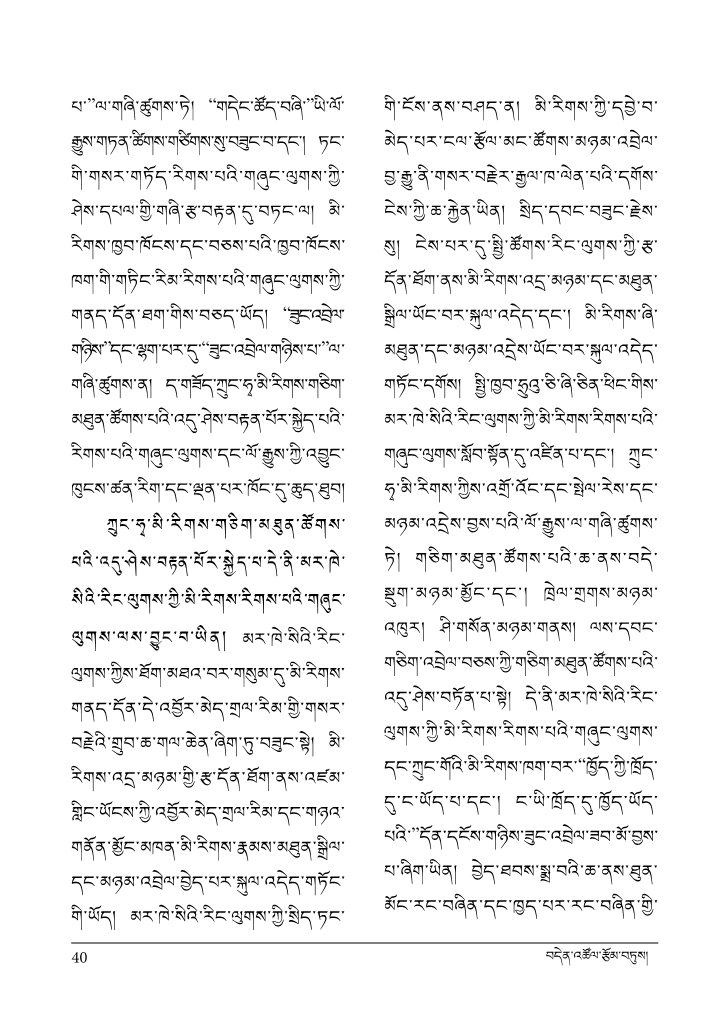 པ་”ལ་གཞི་ཚུགས་ཏེ། “གདེང་ཚོད་བཞི་”ཡི་ལོ་
རྒྱུས་གཏན་ཚིགས་གཙིགས་སུ་བཟུང་བ་དང་། ཏང་
གི་གསར་གཏོད་རིགས་པའི་གཞུང་ལུགས་ཀྱི་
ཤེས་དཔལ་གྱི་གཞི་རྩ་བརྟན་དུ་བཏང་ལ། མི་
རིགས་ཁྱབ་ཁོངས་དང་བཅས་པའི་ཁྱབ་ཁོངས་
ཁག་གི་གཏིང་རིམ་རིགས་པའི་གཞུང་ལུགས་ཀྱི་
གནད་དོན་ཐག་གིས་བཅད་ཡོད། “ཟུང་འབྲེལ་
གཉིས་”དང་ལྷག་པར་དུ་“ཟུང་འབྲེལ་གཉིས་པ་”ལ་
གཞི་ཚུགས་ན། ད་གཟོད་ཀྲུང་ཧྭ་མི་རིགས་གཅིག་
མཐུན་ཚོགས་པའི་འདུ་ཤེས་བརྟན་པོར་སྐྱེད་པའི་
རིགས་པའི་གཞུང་ལུགས་དང་ལོ་རྒྱུས་ཀྱི་འབྱུང་
ཁུངས་ཚན་རིག་དང་ལྡན་པར་ཁོང་དུ་ཆུད་ཐུབ།
ཀྲུང་ཧྭ་མི་རིགས་གཅིག་མཐུན་ཚོགས་
པའི་འདུ་ཤེས་བརྟན་པོར་སྐྱེད་པ་དེ་ནི་མར་ཁེ་
སིའི་རིང་ལུགས་ཀྱི་མི་རིགས་རིགས་པའི་གཞུང་
ལུགས་ལས་བྱུང་བ་ཡིན། མར་ཁེ་སིའི་རིང་
ལུགས་ཀྱིས་ཐོག་མཐའ་བར་གསུམ་དུ་མི་རིགས་
གནད་དོན་དེ་འབྱོར་མེད་གྲལ་རིམ་གྱི་གསར་
བརྗེའི་གྲུབ་ཆ་གལ་ཆེན་ཞིག་ཏུ་བཟུང་སྟེ། མི་
རིགས་འདྲ་མཉམ་གྱི་རྩ་དོན་ཐོག་ནས་འཛམ་
གླིང་ཡོངས་ཀྱི་འབྱོར་མེད་གྲལ་རིམ་དང་གཉའ་
གནོན་མྱོང་མཁན་མི་རིགས་རྣམས་མཐུན་སྒྲིལ་
དང་མཉམ་འབྲེལ་བྱེད་པར་སྐུལ་འདེད་གཏོང་
གི་ཡོད། མར་ཁེ་སིའི་རིང་ལུགས་ཀྱི་སྲིད་ཏང་
གི་ངོས་ནས་བཤད་ན། མི་རིགས་ཀྱི་དབྱེ་བ་
མེད་པར་ངལ་རྩོལ་མང་ཚོགས་མཉམ་འབྲེལ་
བྱ་རྒྱུ་ནི་གསར་བརྗེར་རྒྱལ་ཁ་ལེན་པའི་དགོས་
ངེས་ཀྱི་ཆ་རྐྱེན་ཡིན། སྲིད་དབང་བཟུང་རྗེས་
སུ། ངེས་པར་དུ་སྤྱི་ཚོགས་རིང་ལུགས་ཀྱི་རྩ་
དོན་ཐོག་ནས་མི་རིགས་འདྲ་མཉམ་དང་མཐུན་
སྒྲིལ་ཡོང་བར་སྐུལ་འདེད་དང་། མི་རིགས་ཞི་
མཐུན་དང་མཉམ་འདྲེས་ཡོང་བར་སྐུལ་འདེད་
གཏོང་དགོས། སྤྱི་ཁྱབ་ཧྲུའུ་ཅི་ཞི་ཅིན་ཕིང་གིས་
མར་ཁེ་སིའི་རིང་ལུགས་ཀྱི་མི་རིགས་རིགས་པའི་
གཞུང་ལུགས་སློབ་སྟོན་དུ་འཛིན་པ་དང་། ཀྲུང་
ཧྭ་མི་རིགས་ཀྱིས་འགྲོ་འོང་དང་སྤེལ་རེས་དང་
མཉམ་འདྲེས་བྱས་པའི་ལོ་རྒྱུས་ལ་གཞི་ཚུགས་
ཏེ། གཅིག་མཐུན་ཚོགས་པའི་ཆ་ནས་བདེ་
སྡུག་མཉམ་མྱོང་དང་། ཁྲེལ་གྲགས་མཉམ་
འཁུར། ཤི་གསོན་མཉམ་གནས། ལས་དབང་
གཅིག་འབྲེལ་བཅས་ཀྱི་གཅིག་མཐུན་ཚོགས་པའི་
འདུ་ཤེས་བཏོན་པ་སྟེ། དེ་ནི་མར་ཁེ་སིའི་རིང་
ལུགས་ཀྱི་མི་རིགས་རིགས་པའི་གཞུང་ལུགས་
དང་ཀྲུང་གོའི་མི་རིགས་ཁག་བར་“ཁྱོད་ཀྱི་ཁྲོད་
དུ་ང་ཡོད་པ་དང་། ང་ཡི་ཁྲོད་དུ་ཁྱོད་ཡོད་
པའི་”དོན་དངོས་གཉིས་ཟུང་འབྲེལ་ཟབ་མོ་བྱས་
པ་ཞིག་ཡིན། བྱེད་ཐབས་སྨྲ་བའི་ཆ་ནས་ཐུན་
མོང་རང་བཞིན་དང་ཁྱད་པར་རང་བཞིན་གྱི་
40
བདེན་འཚོལ་རྩོམ་བཏུས།